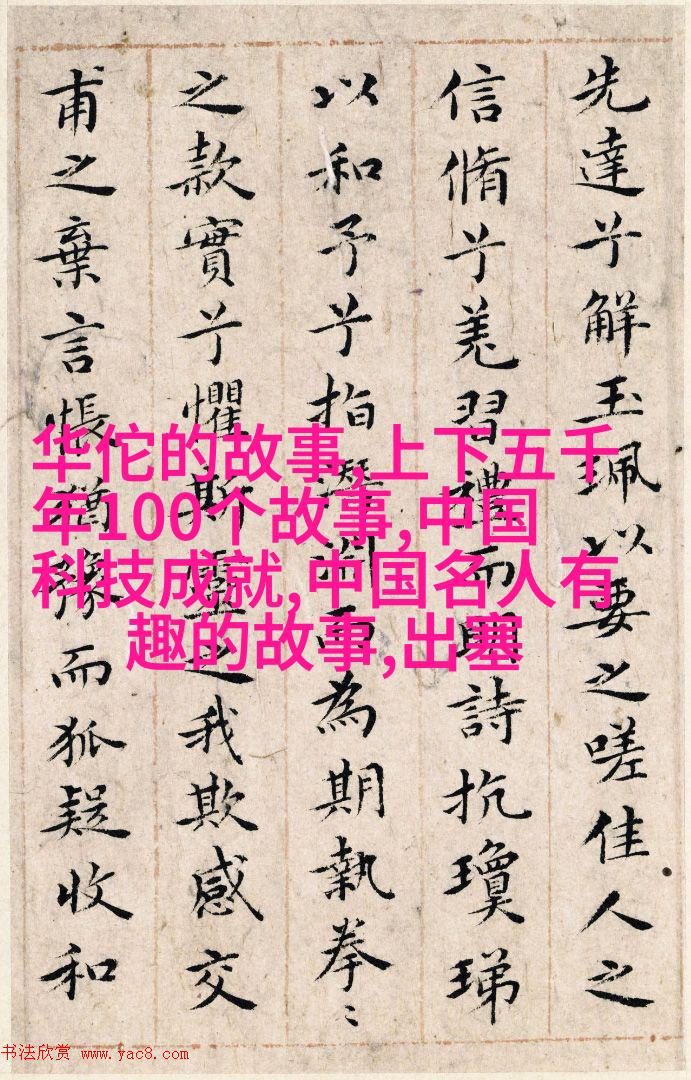 先達兮解玉珮以要之嗟佳人之
信脩兮羌習禮而明詩抗瓊珶
以和予兮指潛淵而為期執拳〻
之款實兮懼斯靈之我欺感交
甫之棄言悵猶豫而狐疑收和
华佗的故事,上下五千
年100个故事,中国
科技成就,中国名人有
趣的故事,出塞
书法欣赏 www.yac8.com